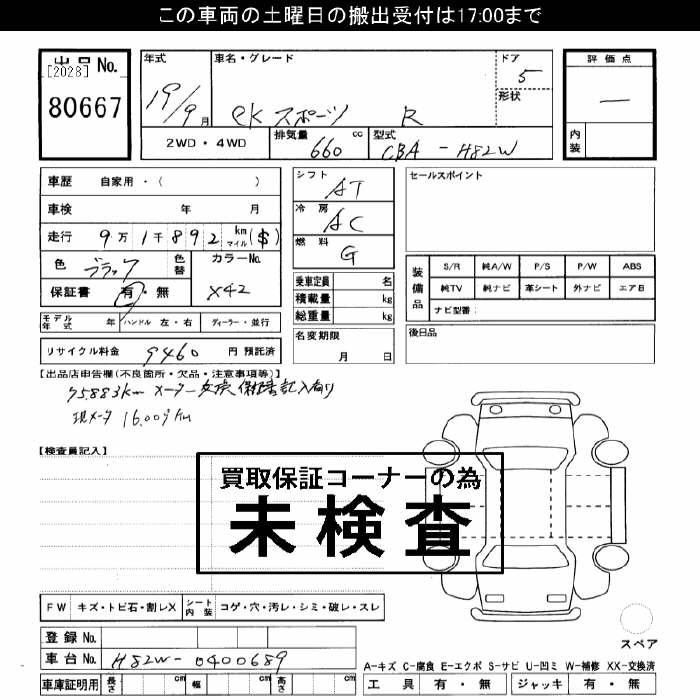 この車両の土曜日の搬出受付は17:00まで
出品No.
[2028]
80667
年式
19/9月
車名・グレード
eKスポーツ R
ドア
5
形状
評価点
―
内装
2WD・4WD
排気量 660 cc
型式 CBA-H82W
車歴 自家用・( )
車検 年 月
走行 9万1千892 km マイル ($)
色 ブラック
色替
カラーNo. X42
保証書 有・無
モデル年式 年 ハンドル 左・右 ディーラー・並行
リサイクル料金 9460 円 預託済
シフト AT
冷房 AC
燃料 G
乗車定員 名
積載量 kg
総重量 kg
名変期限
月 日
セールスポイント
装備品
S/R 純A/W P/S P/W ABS
純TV 純ナビ 革シート 外ナビ エアB
ナビ型番:
後日品
【出品店申告欄(不良箇所・欠品・注意事項等)】
75.883km メーター交換 保証書記入有り
現メータ 16.009km
【検査員記入】
買取保証コーナーの為
未検査
FW キズ・トビ石・割レX シート内装 コゲ・穴・汚レ・シミ・破レ・スレ
登録No.
車台No. H82W-0400689
車庫証明用 長さ cm 幅 cm 高さ cm
スペア
A-キズ C-腐食 E-エクボ S-サビ U-凹ミ W-補修 XX-交換済
工具 有・無 ジャッキ 有・無